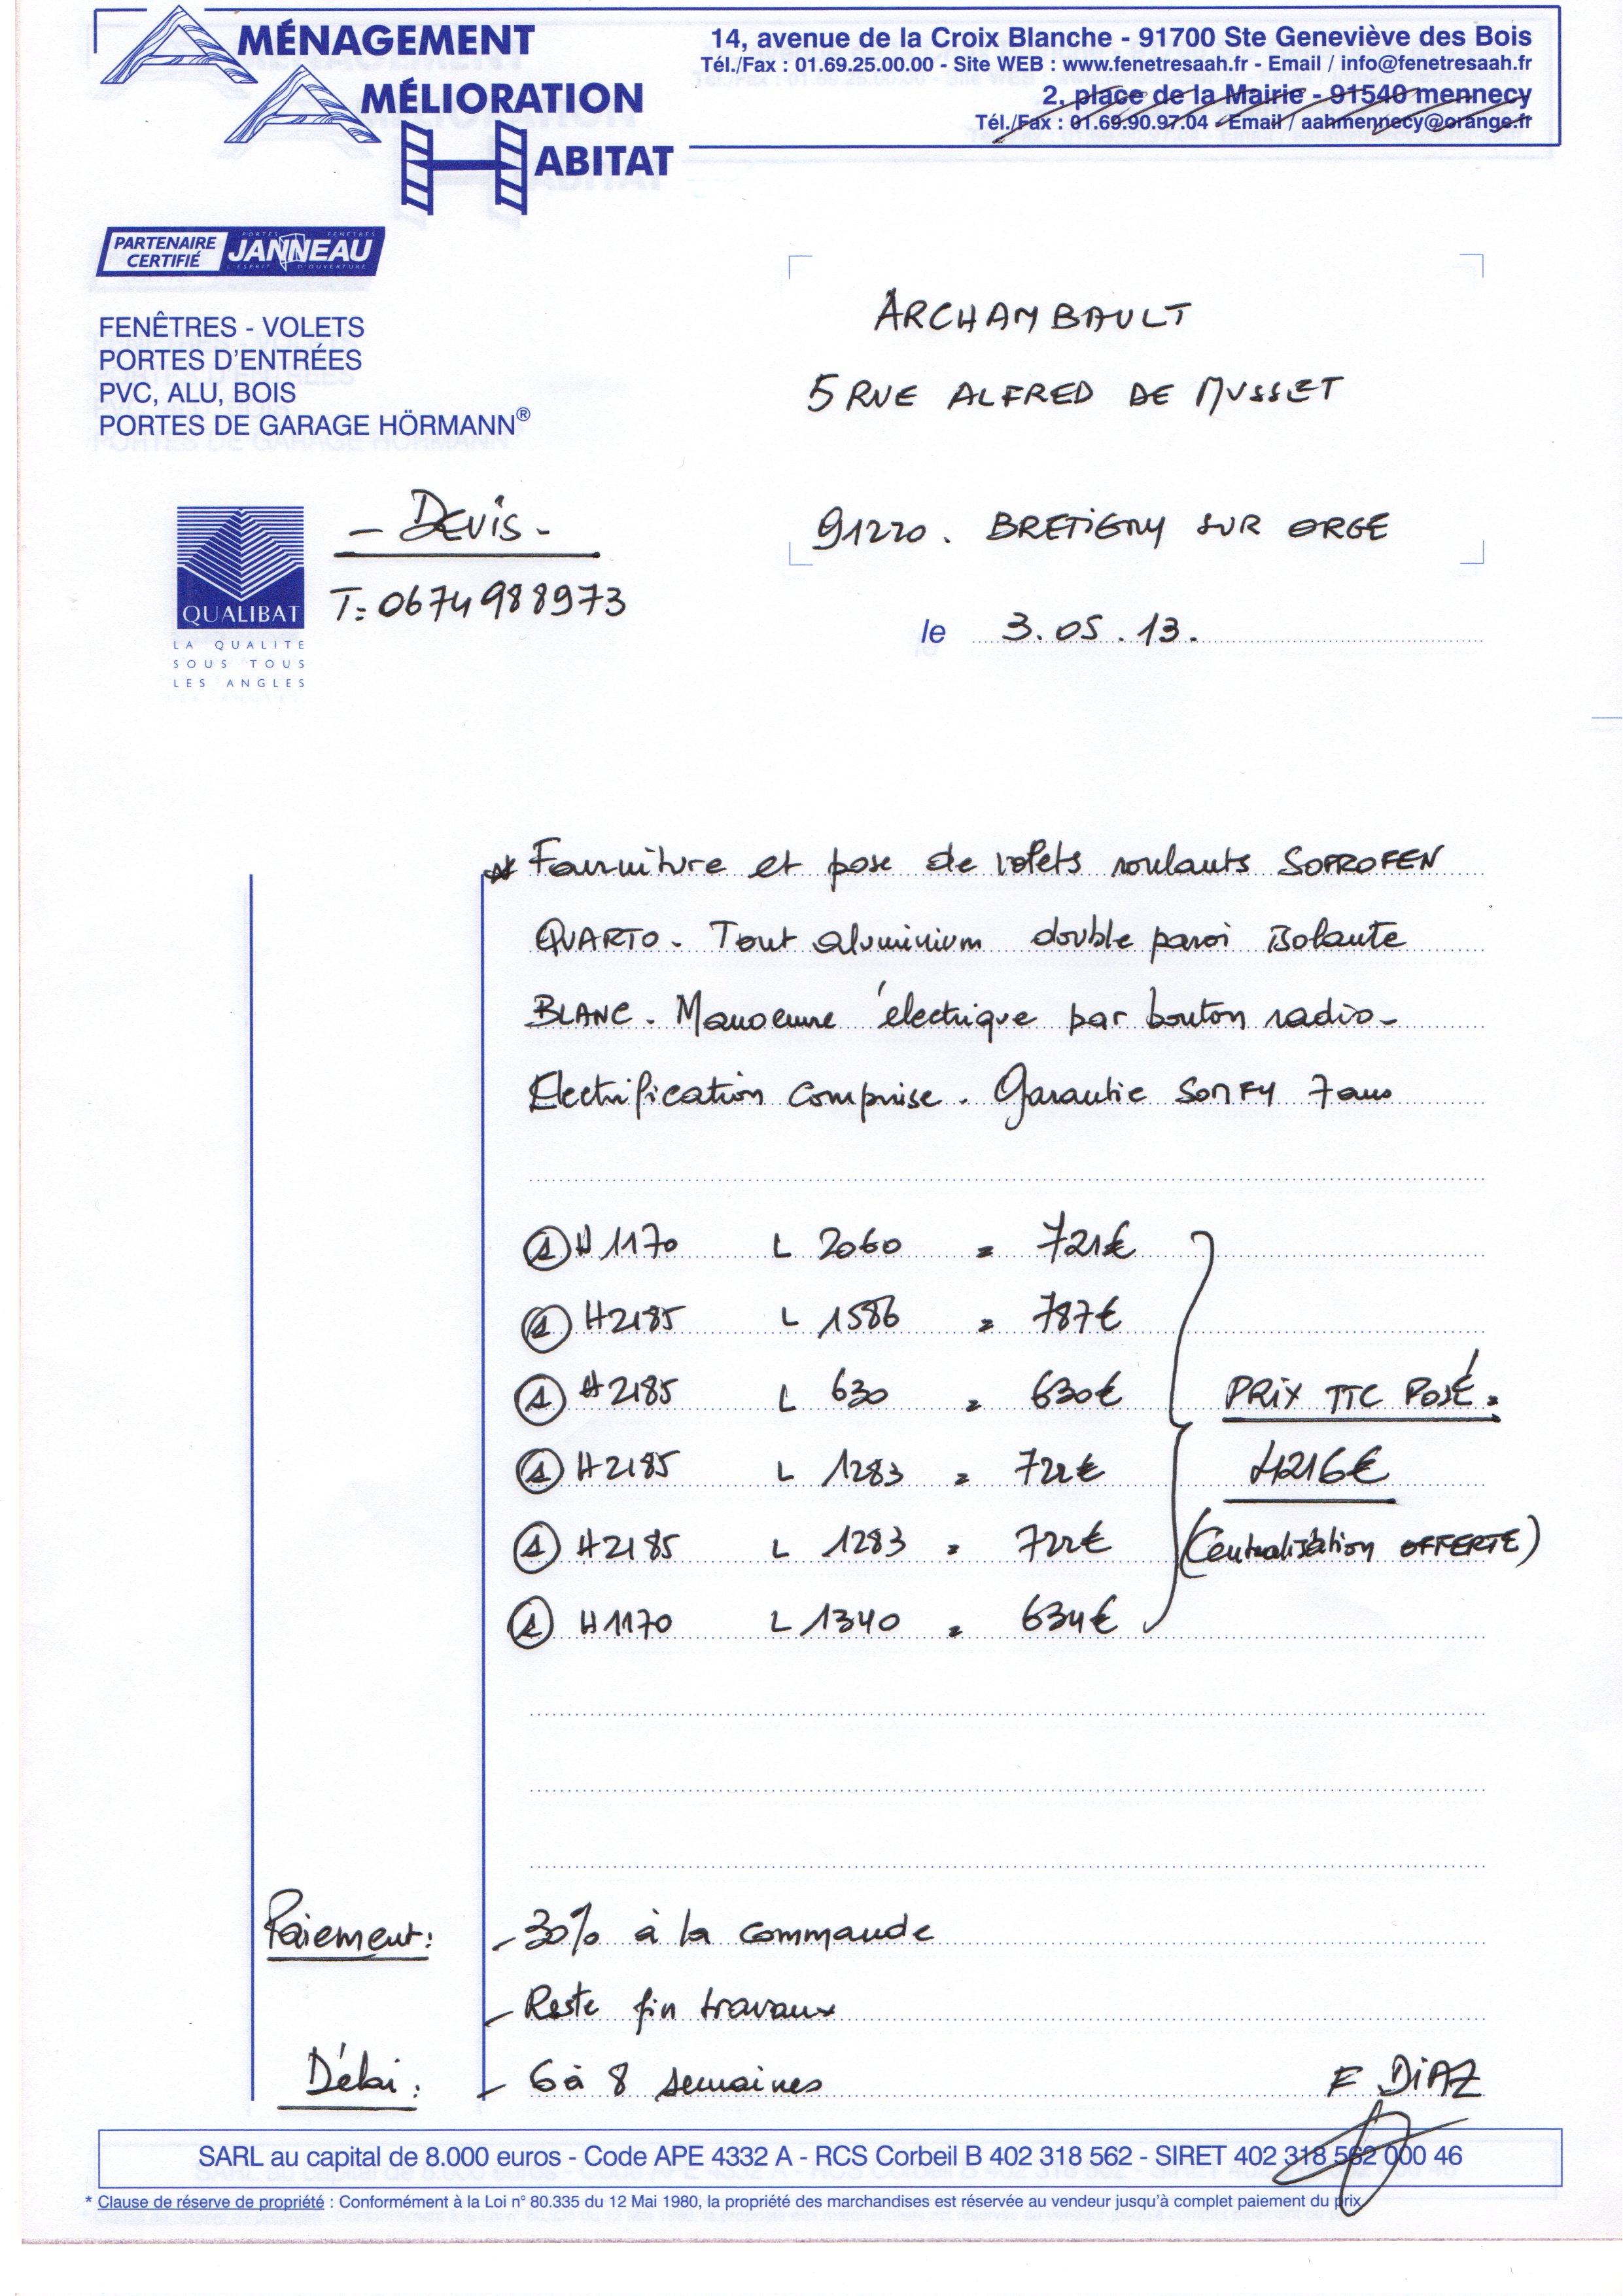 AMÉNAGEMENT
AMÉLIORATION
HABITAT
14, avenue de la Croix Blanche - 91700 Ste Geneviève des Bois
Tél./Fax : 01.69.25.00.00 - Site WEB : www.fenetresaah.fr - Email / info@fenetresaah.fr
2, place de la Mairie - 91540 mennecy
Tél./Fax : 01.69.90.97.04 - Email / aahmennecy@orange.fr
PARTENAIRE CERTIFIÉ
PORTES FENÊTRES
JANNEAU
L'ESPRIT D'OUVERTURE
FENÊTRES - VOLETS
PORTES D'ENTRÉES
PVC, ALU, BOIS
PORTES DE GARAGE HÖRMANN®
ARCHAMBAULT
5 RUE ALFRED DE MUSSET
91220. BRETIGNY SUR ORGE
- DEVIS -
T: 0674988973
QUALIBAT
LA QUALITE
SOUS TOUS
LES ANGLES
le 3.05.13.
* Fourniture et pose de volets roulants SOPROFEN
QUARTO. Tout aluminium double paroi Isolante
BLANC. Manoeuvre électrique par bouton radio-
Electrification comprise. Garantie SOMFY 7 ans
1 H 1170 L 2060 = 721€
1 H 2185 L 1586 = 787€
1 H 2185 L 630 = 630€
PRIX TTC POSÉ.
1 H 2185 L 1283 = 722€
4216€
1 H 2185 L 1283 = 722€
(Centralisation OFFERTE)
1 H 1170 L 1340 = 634€
Paiement: - 30% à la commande
- Reste fin travaux
Délai: - 6 à 8 semaines
F DIAZ
SARL au capital de 8.000 euros - Code APE 4332 A - RCS Corbeil B 402 318 562 - SIRET 402 318 562 000 46
* Clause de réserve de propriété : Conformément à la Loi n° 80.335 du 12 Mai 1980, la propriété des marchandises est réservée au vendeur jusqu'à complet paiement du prix.